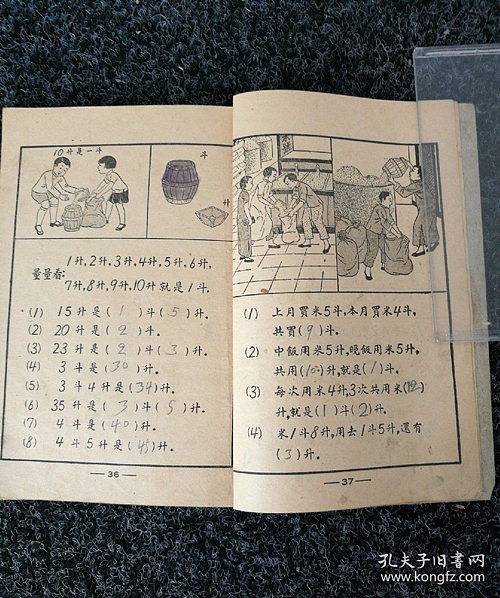 10升是一斗
斗
升
1升,2升,3升,4升,5升,6升,
量量看:
7升,8升,9升,10升就是1斗.
(1) 15升是(1)斗(5)升.
(2) 20升是(2)斗.
(3) 23升是(2)斗(3)升.
(4) 3斗是(30)升.
(5) 3斗4升是(34)升.
(6) 35升是(3)斗(5)升.
(7) 4斗是(40)升.
(8) 4斗5升是(45)升.
—36—
(1) 上月買米5斗,本月買米4斗,
共買(9)斗.
(2) 中飯用米5升,晚飯用米5升,
共用(10)升,就是(1)斗.
(3) 每次用米4升,3次共用米(12)
升,就是(1)斗(2)升.
(4) 米1斗8升,用去1斗5升,還有
(3)升.
—37—
孔夫子旧书网
www.kongfz.com